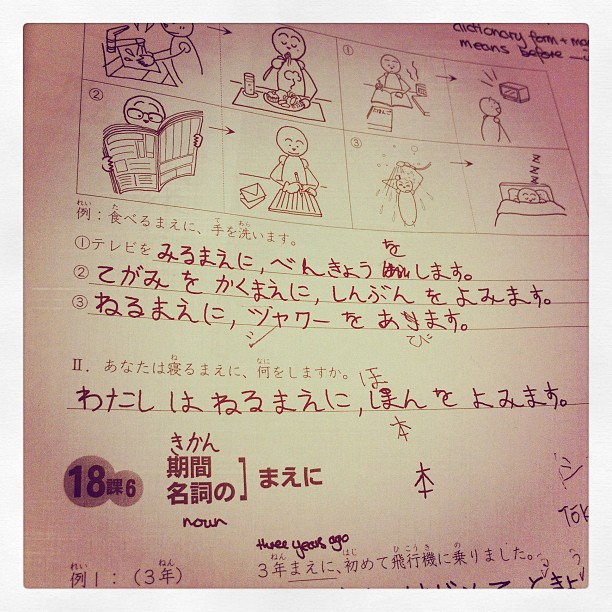 dictionary form +
means before
①
②
③
例：食べるまえに、手を洗います。
①テレビを みるまえに, べんきょう をします。
② てがみ を かくまえに, しんぶん を よみます。
③ ねるまえに, ヅャワー を あきます。
シ び
Ⅱ. あなたは寝るまえに、何をしますか。
ほ
わたし は ねるまえに, ほん を よみます。
本
きかん
18課6 期間 名詞の］まえに
本
シ
noun
three years ago
例1：（3年） 3年まえに、初めて飛行機に乗りました。